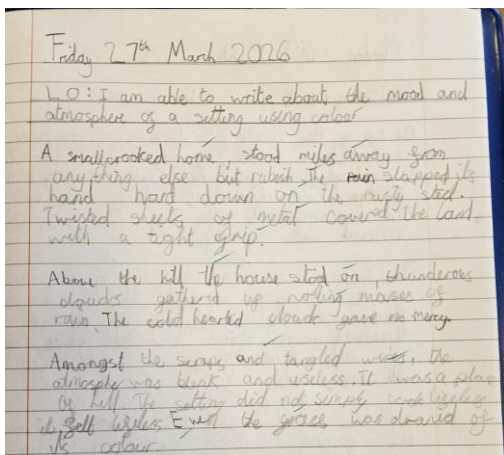 Friday 27th March 2026
LO: I am able to write about the mood and
atmosphere of a setting using colour
A small crooked home, stood miles away from
anything else but rubish. The rain slapped its
hand hard down on the rusty steel.
Twisted sheets of metal covered the land
with a tight grip.
Above the hill the house stod on, thunderous
clouds gathered up of
rain. The cold hearted clouds gave no mercy.
Amongst the scraps and tangled wires, the
atmosphe was bleak and useless. It was a place
of hell. The setting did not simply look lifeless
it felt lifeless. Even the was drained of
its colour.